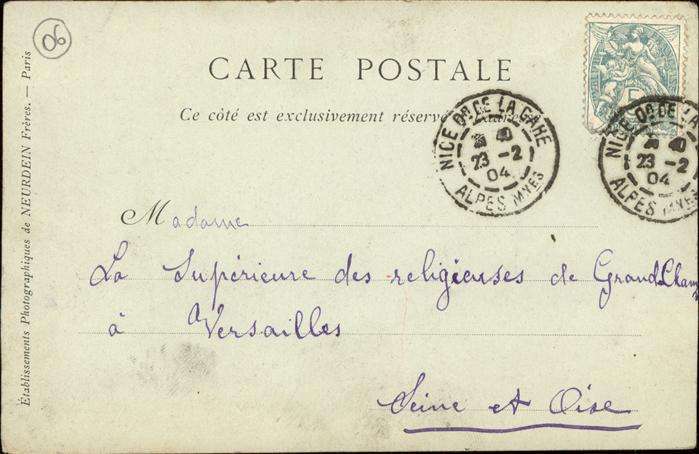 06
CARTE POSTALE
Ce côté est exclusivement réservé
NICE Don DE LA GARE
23 -2
04
ALPES MMES
NICE Don DE LA
23 -2
04
ALPES MMES
Madame
La Supérieure des religieuses de Grand Champ
à Versailles
Seine et Oise
Établissements Photographiques de NEURDEIN Frères. — Paris